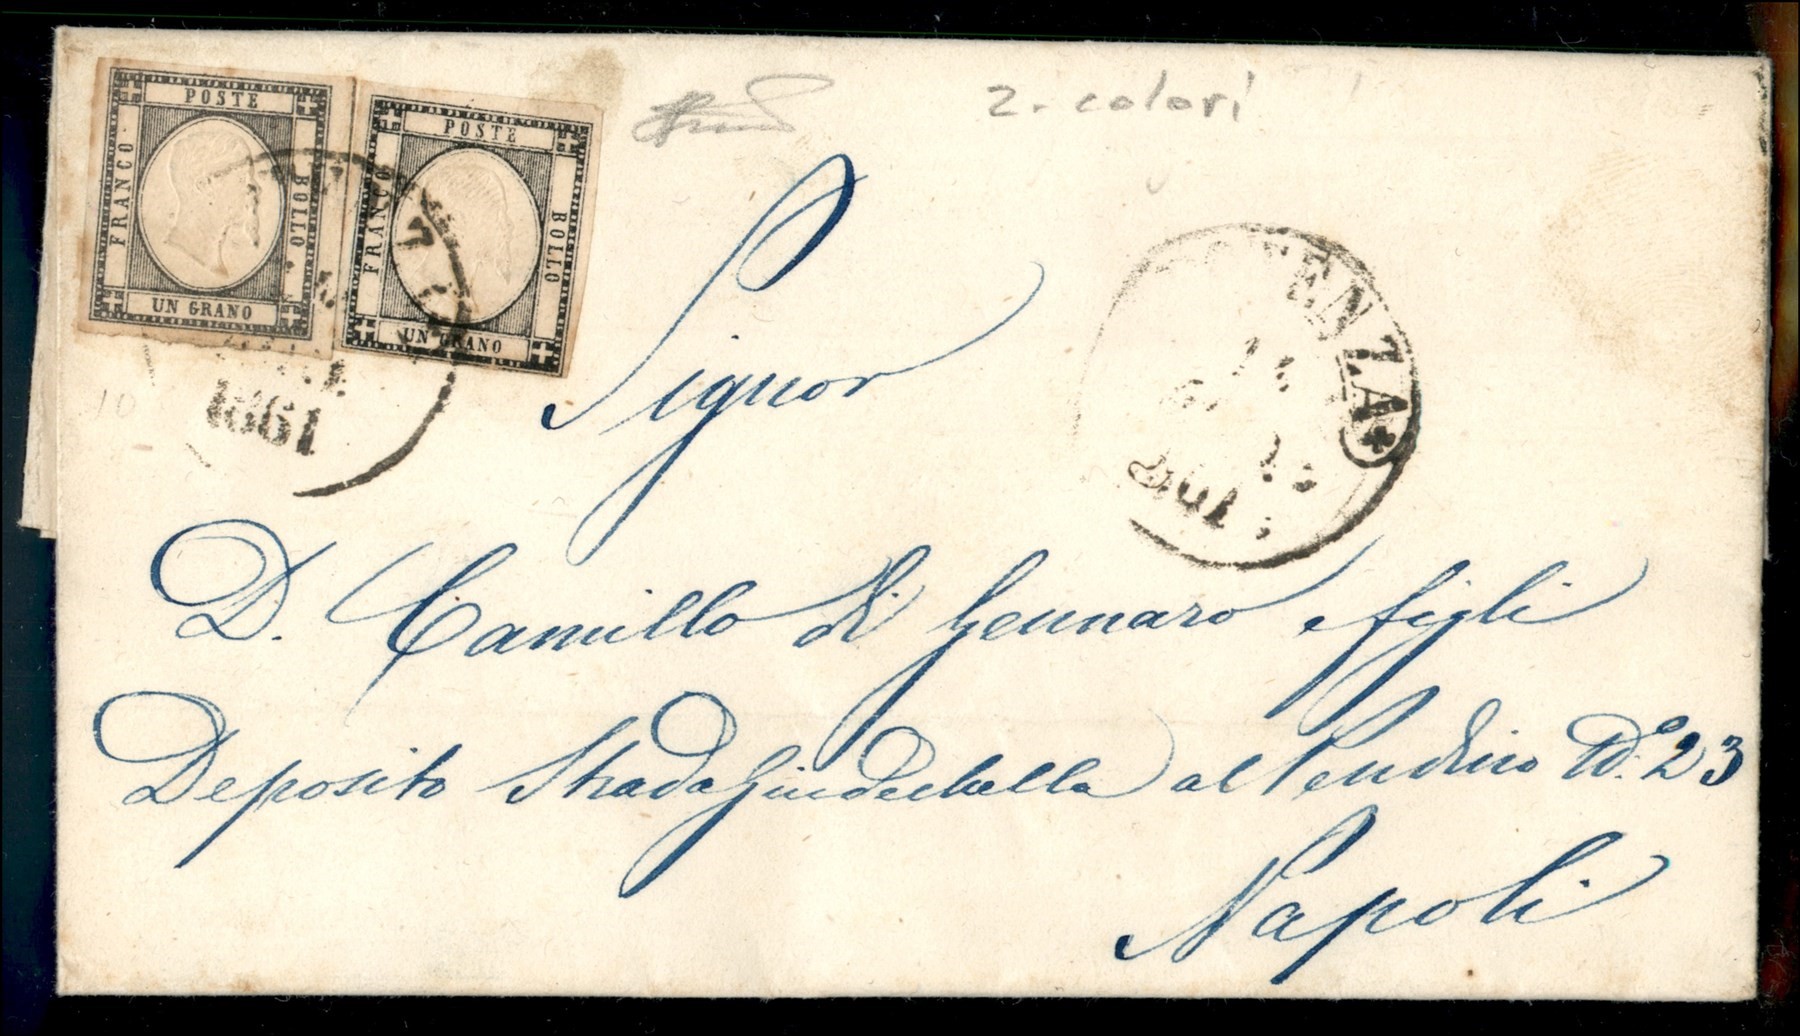 POSTE
FRANCO
BOLLO
UN GRANO
POSTE
FRANCO
BOLLO
UN GRANO
2. colori
1861
TENZA
1861
10
Signor
D. Camillo di Gennaro e figli
Deposito Strada Giudechella al Pendino No. 23
Napoli